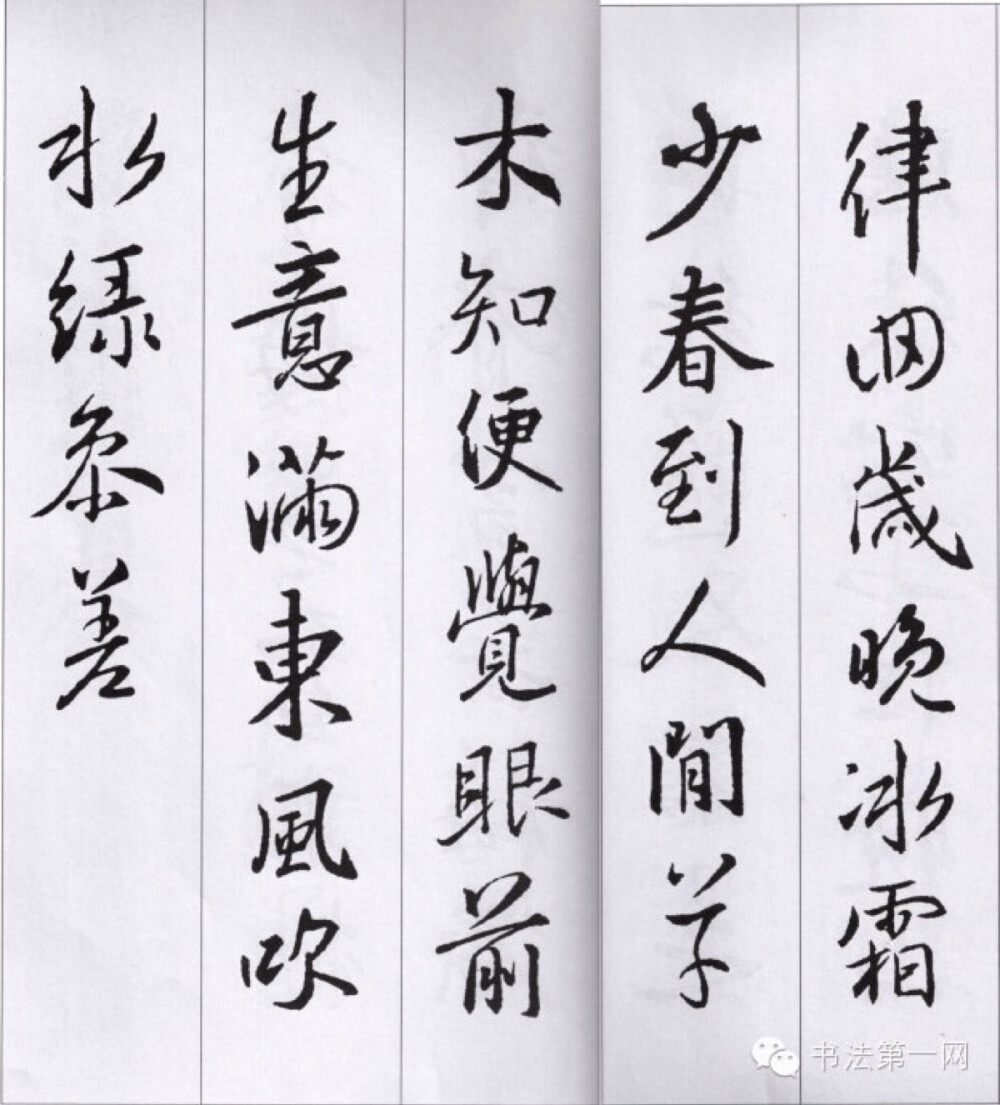 律回歲晚冰霜
少春到人間草
木知便覺眼前
生意滿東風吹
水綠參差
书法第一网